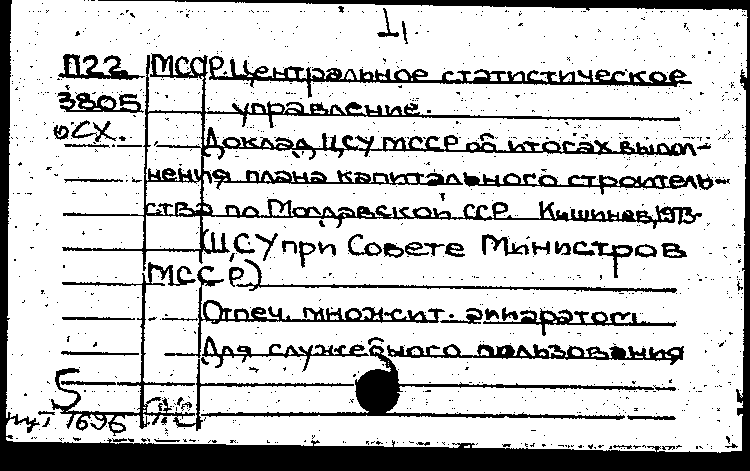 П22 МССР. Центральное статистическое
3805 управление.
СХ. Доклад ЦСУ МССР об итогах выпол-
нения плана капитального строитель-
ства по Молдавской ССР. Кишинев, 1973-
(ЦСУ при Совете Министров
МССР)
Отпеч. множит. аппаратом.
Для служебного пользования
5
1696